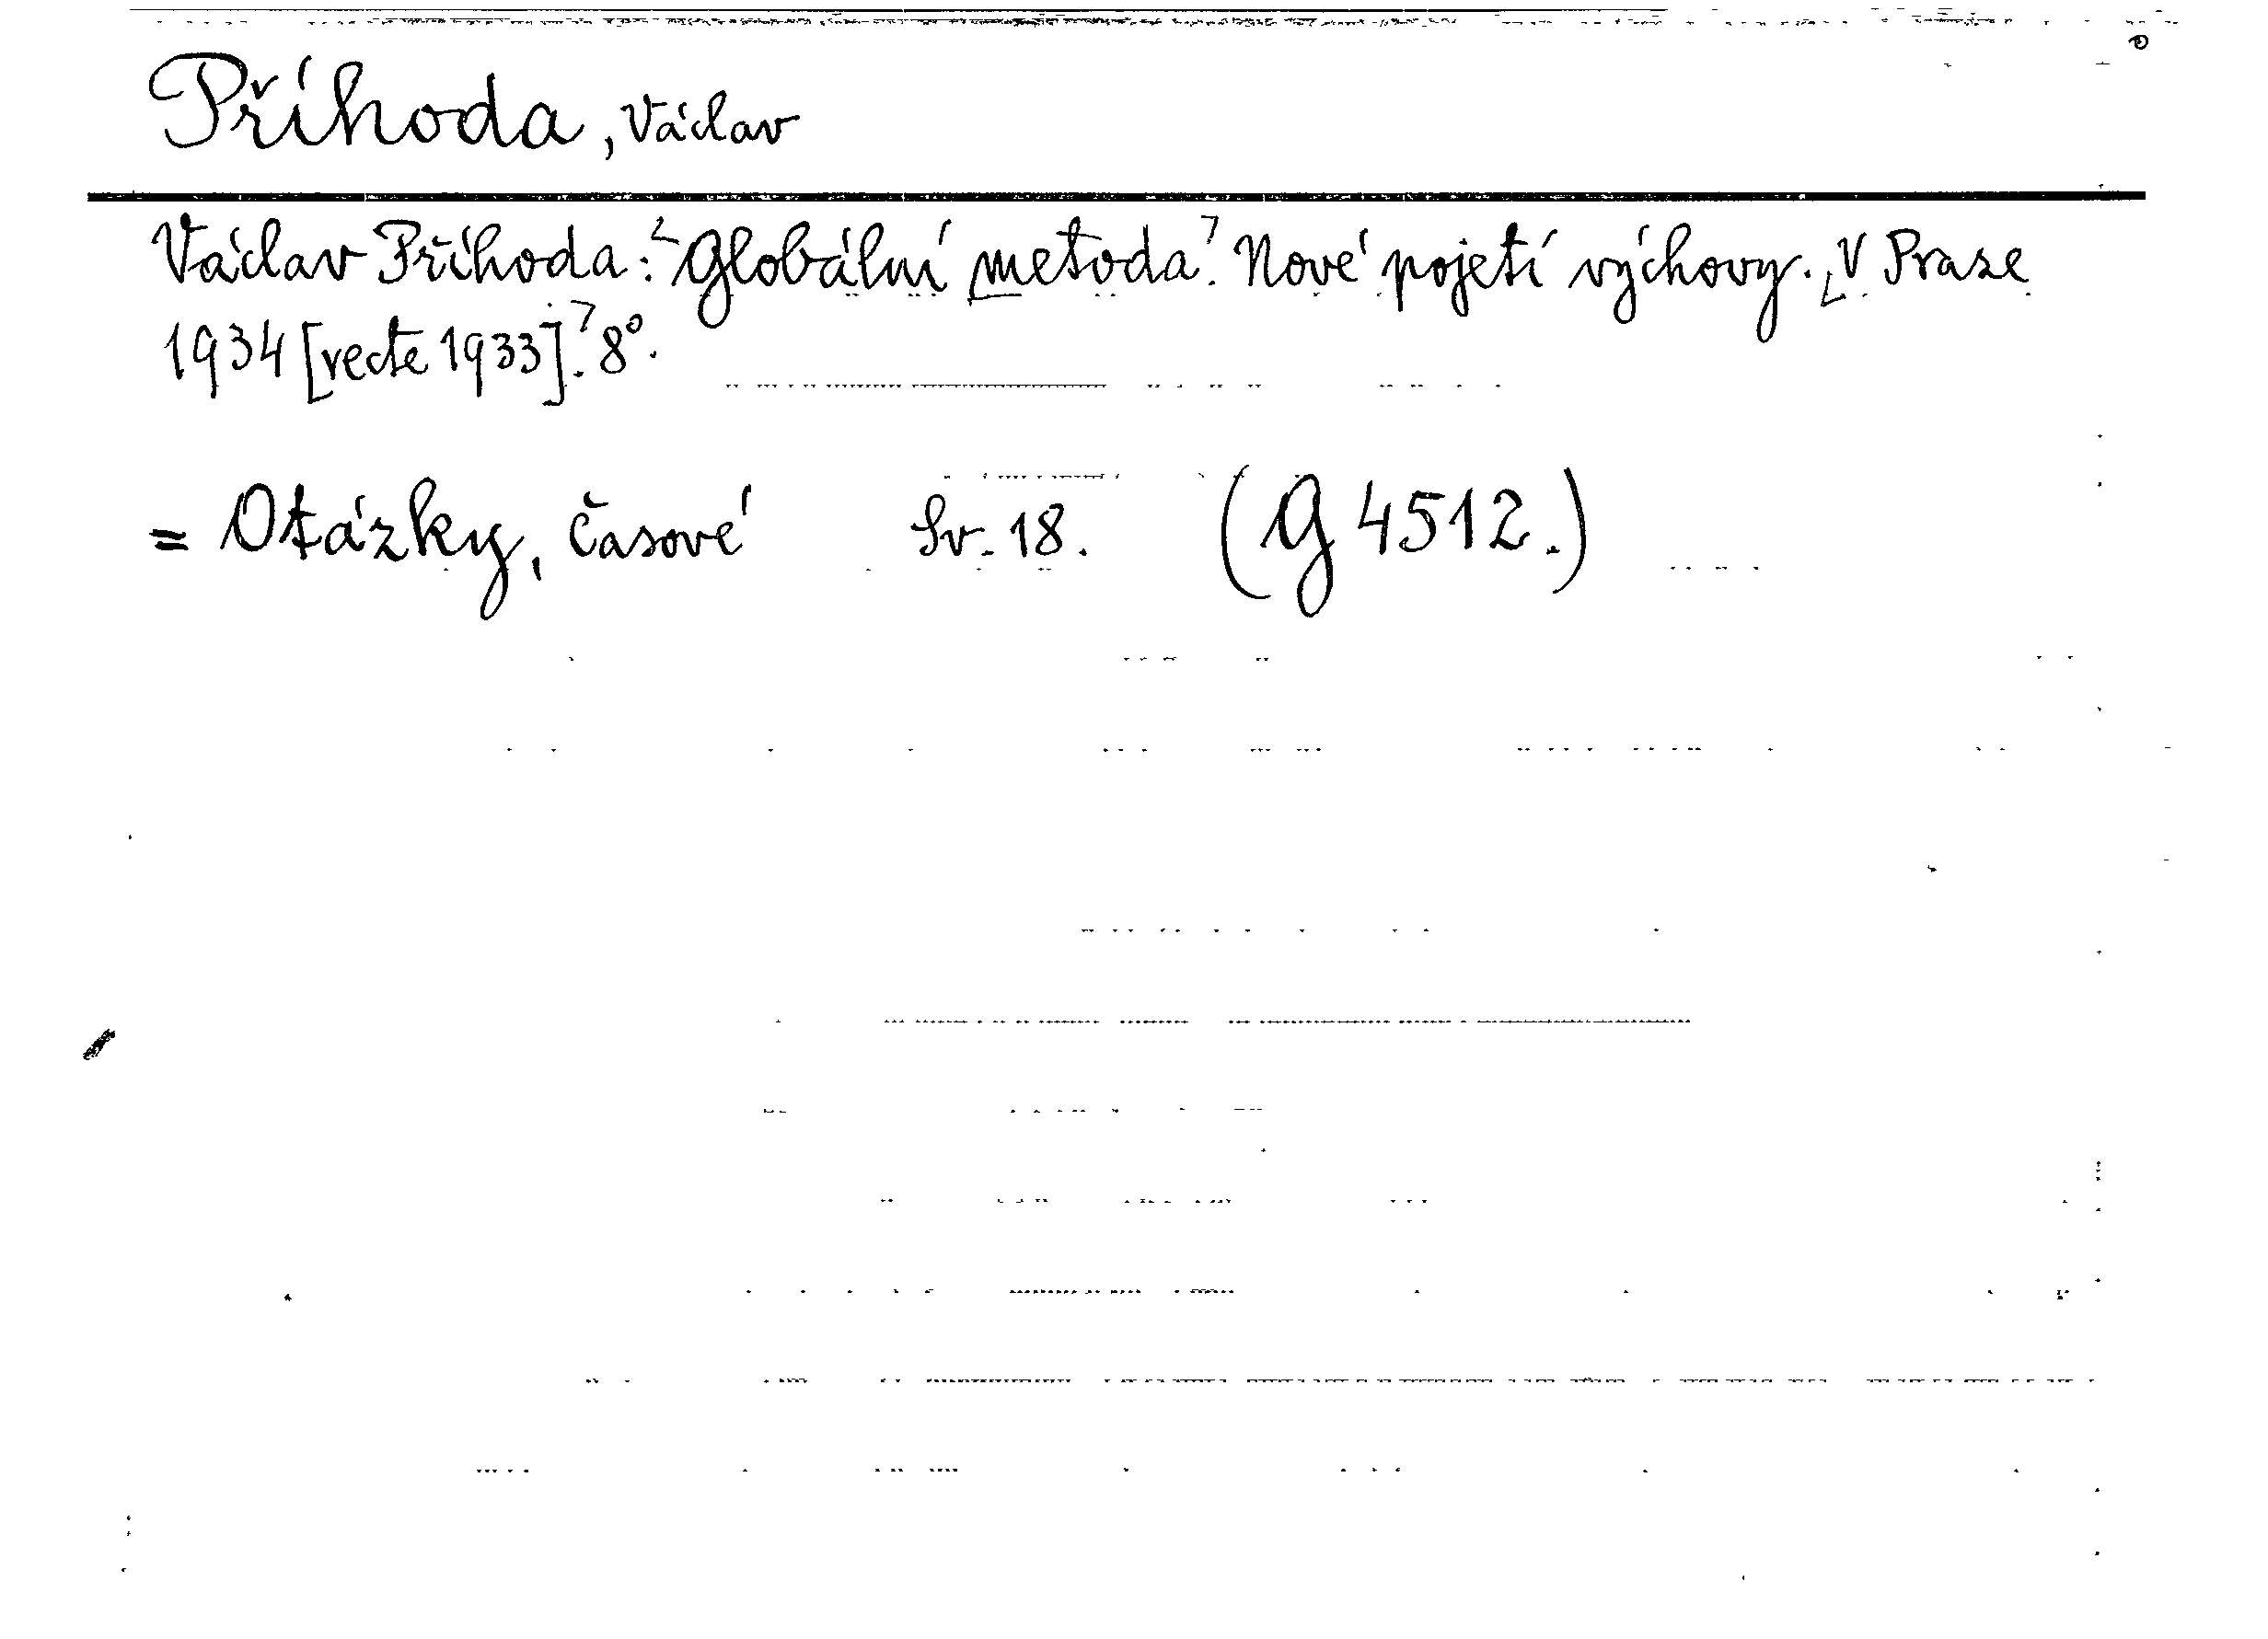 Příhoda, Václav
Václav Příhoda: Globální metoda. Nové pojetí výchovy. V Praze
1934 [recte 1933]. 8°.
= Otázky, Časové Sv. 18. (G 4512.)